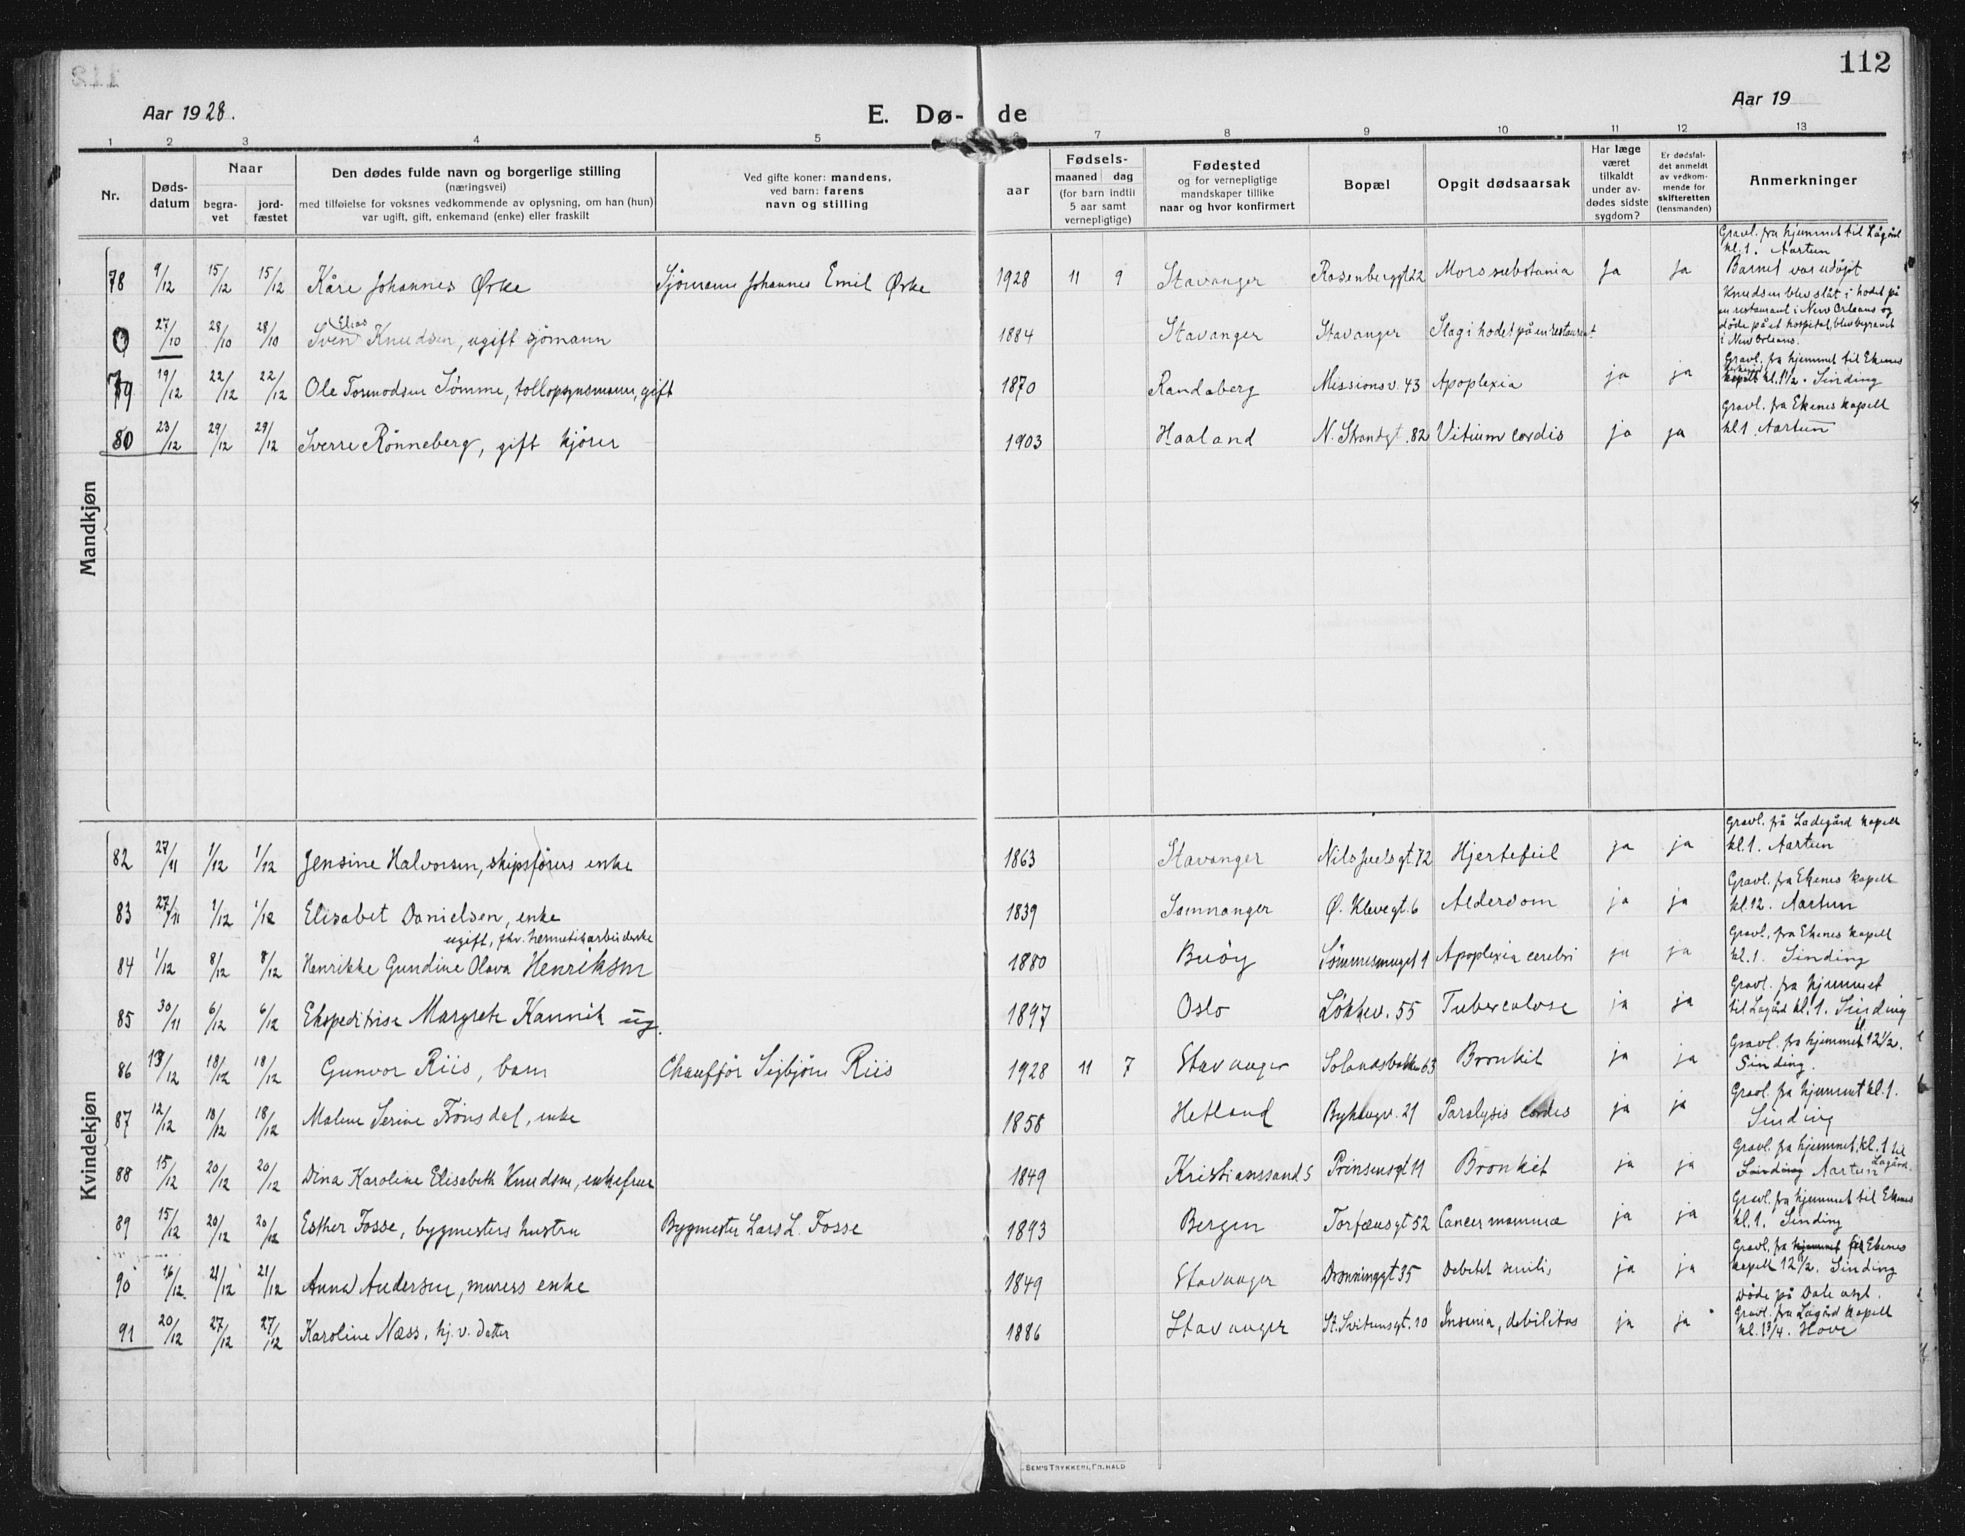 112
Aar 1928.
E. Dø- de
Aar 19
1 2 3 4 5 6 7 8 9 10 11 12 13
Nr.
Døds-
datum
Naar
begra-
vet
jord-
fæstet
Den dødes fulde navn og borgerlige stilling
(næringsvei)
med tilføielse for voksnes vedkommende av oplysning, om han (hun)
var ugift, gift, enkemand (enke) eller fraskilt
Ved gifte koner: mandens,
ved barn: farens
navn og stilling
aar
Fødsels-
maaned dag
(for barn indtil
5 aar samt
vernepligtige)
Fødested
og for vernepligtige
mandskaper tillike
naar og hvor konfirmert
Bopæl
Opgit dødsaarsak
Har læge
været
tilkaldt
under av-
dødes sidste
sygdom?
Er dødsfal-
det anmeldt
av vedkom-
mende for
skifteretten
(lensmanden)
Anmerkninger
Mandkjøn
78 9/12 15/12 15/12 Kåre Johannes Ørke Sjømann Johannes Emil Ørke 1928 11 9 Stavanger Rosenberggt 22 Mors substania ja ja Gravl. fra hjemmet til Lågård
kl. 1. Aartun
Barnet var udøpt
0 27/10 28/10 28/10 Sven Elias Knudsen, ugift sjømann 1884 Stavanger Stavanger Slag i hodet på en restaurant. Knudsen blev slåt i hodet på
en restaurant i New Orleans og
døde på et hospital, blev begravet
i New Orleans.
79 19/12 22/12 22/12 Ole Tormodsen Sømme, tollopsynsmann, gift 1870 Randaberg Missionsv. 43 Apoplexia ja ja Gravl. fra hjemmet til Ekenes
kl. 1 1/2. Sinding
80 23/12 29/12 29/12 Sverre Rønneberg, gift kjører 1903 Haaland N. Strandgt. 82 Vitium cordis ja ja Gravl. fra Ekenes kapell
kl 1. Aartun
Kvindekjøn
82 27/11 1/12 1/12 Jensine Halvorsen, skipsførers enke 1863 Stavanger Nils Juelsgt 72 Hjertefeil ja ja Gravl. frå Ladegård kapell
kl. 1. Aartun
83 27/11 1/12 1/12 Elisabet Danielsen, enke 1839 Samnanger Ø. Klevegt 6 Alderdom ja ja Gravl. fra Ekenes kapell
kl. 12. Aartun
ugift, fhv. hermetikarbeiderske
84 1/12 8/12 8/12 Henrikke Gundine Olava Henriksen 1880 Buøy Sømmesmuget 1 Apoplexia cerebri ja ja Gravl. fra Ekenes kapell
kl. 1. Sinding
85 30/11 6/12 6/12 Ekspeditrise Margrete Kannik ug. 1897 Oslo Løkkev. 55 Tuberculose ja ja Gravl. fra hjemmet
til Lagård kl. 1. Sinding
86 13/12 18/12 18/12 Gunvor Riis, barn Chauffør Sigbjørn Riis 1928 11 7 Stavanger Solandsbakken 63 Bronkit ja ja Gravl. fra hjemmet kl 12 1/2.
Sinding.
87 12/12 18/12 18/12 Malene Serine Frønsdal, enke 1858 Hetland Byhaugv. 21 Paralysis cordis ja ja Gravl. fra hjemmet kl. 1.
Sinding
88 15/12 20/12 20/12 Dina Karoline Elisabeth Knudsen, enkefrue 1849 Kristianssand S Prinsensgt 11 Bronkit ja ja Gravl. fra hjemmet, kl. 1 til
Sinding Aartun Lagård.
89 15/12 20/12 20/12 Esther Fosse, bygmesters hustru Bygmester Lars L. Fosse 1893 Bergen Torfæusgt 52 Cancer mammæ ja ja Gravl. fra hjemmet til Ekenes
kl. 1. Sinding
90 16/12 21/12 21/12 Anna Andersen, murers enke 1849 Stavanger Dronninggt 35 Debetet senilis ja ja Gravl. fra hjemmet til Ekenes
kapell 12 1/2. Sinding
91 20/12 27/12 27/12 Karoline Næss, hj. v. datter 1886 Stavanger St. Svitunsgt. 10 Insania, debilitas ja ja Døde på Dale asyl.
Gravl. fra Lagård kapell
kl. 1 3/4. Hove
SEM'S TRYKKERI, FR. HALD